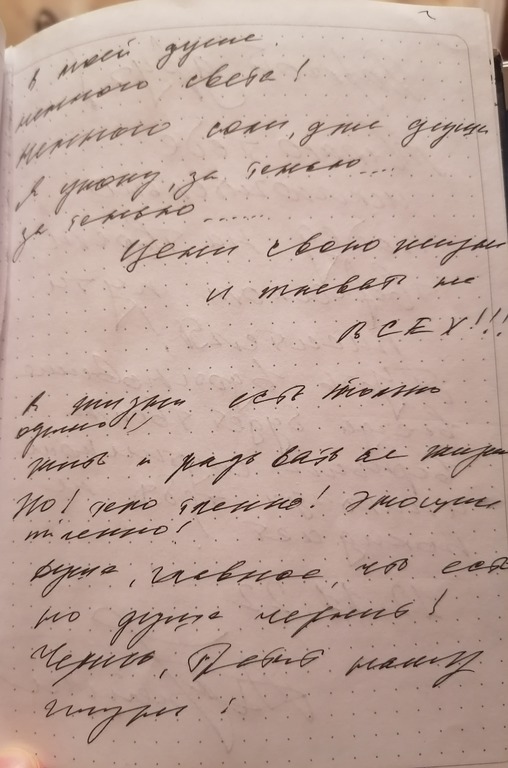 в моей душе
немного света!
немного соли, для души
Я утону, за тенью...
за тенью......
Цени свою жизнь
и плевать на
ВСЕХ!!!
в жизни есть только
одно
жить и радоваться жизни
Но! тело тленно! Эмоции
тленно!
Душа, главное, что есть
но душа чернит!
нашу
жизнь!